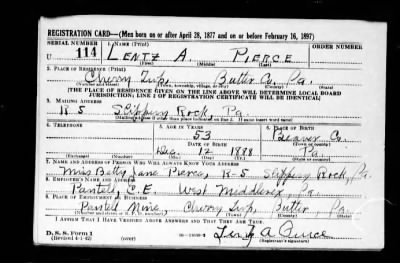 REGISTRATION CARD—(Men born on or after April 28, 1877 and on or before February 16, 1897)
SERIAL NUMBER 1. NAME (Print) ORDER NUMBER
U 114 LENTZ A. PIERCE
(First) (Middle) (Last)
2. PLACE OF RESIDENCE (Print)
Cherry Twp, Butler Co. Pa.
(Number and street) (Town, township, village, or city) (County) (State)
[THE PLACE OF RESIDENCE GIVEN ON THE LINE ABOVE WILL DETERMINE LOCAL BOARD
JURISDICTION; LINE 2 OF REGISTRATION CERTIFICATE WILL BE IDENTICAL]
3. MAILING ADDRESS
R-5 Slippery Rock, Pa.
[Mailing address if other than place indicated on line 2. If same insert word same]
4. TELEPHONE 5. AGE IN YEARS 6. PLACE OF BIRTH
53 Beaver Co
DATE OF BIRTH (Town or county)
Dec. 12 1888 Pa.
(Exchange) (Number) (Mo.) (Day) (Yr.) (State or country)
7. NAME AND ADDRESS OF PERSON WHO WILL ALWAYS KNOW YOUR ADDRESS
Miss Betty Jane Pierce, R-5 Slippery Rock, Pa.
8. EMPLOYER'S NAME AND ADDRESS
C.E. West Middlesex, Pa.
9. PLACE OF EMPLOYMENT OR BUSINESS
Mine, Cherry Twp, Butler, Pa.
(Number and street or R. F. D. number) (Town) (County) (State)
I AFFIRM THAT I HAVE VERIFIED ABOVE ANSWERS AND THAT THEY ARE TRUE.
D. S. S. Form 1 Lentz A Pierce
(Revised 4-1-42) (over) (Registrant's signature)